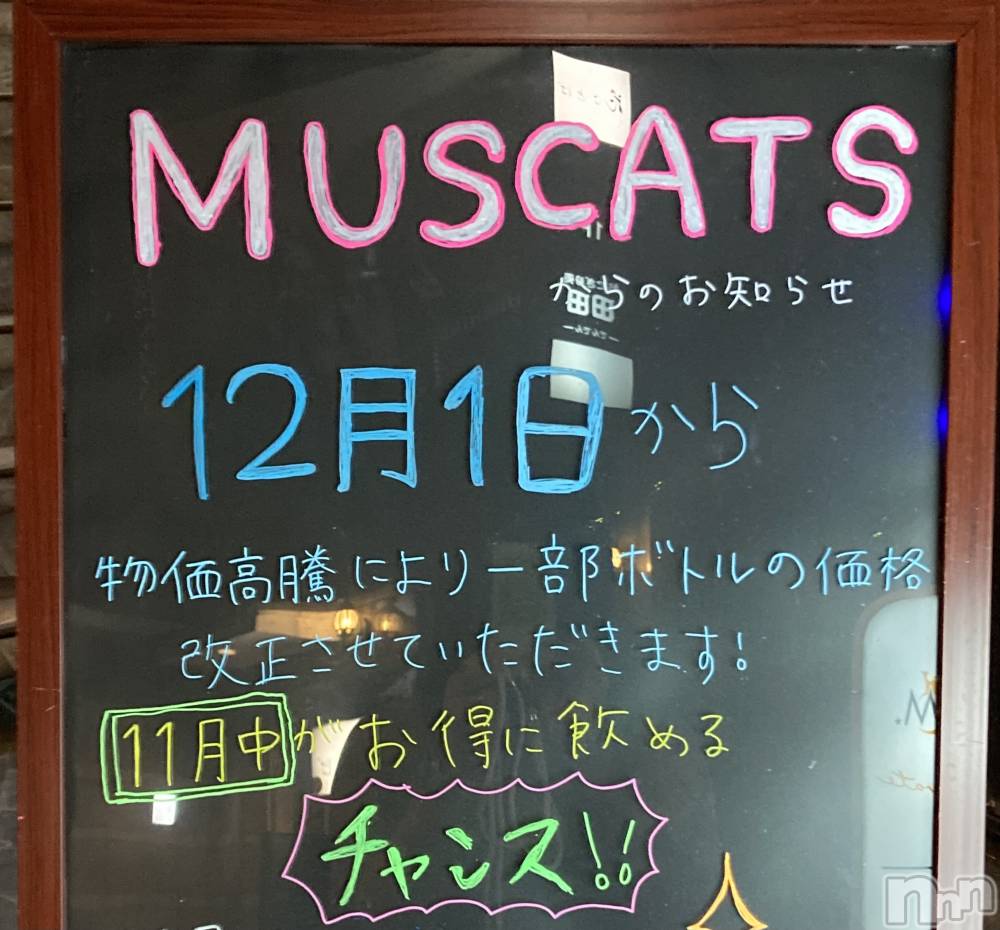 MUSCATS
からのお知らせ
12月1日から
物価高騰により一部ボトルの価格
改正させていただきます!
11月中がお得に飲める
チャンス!!
nnn